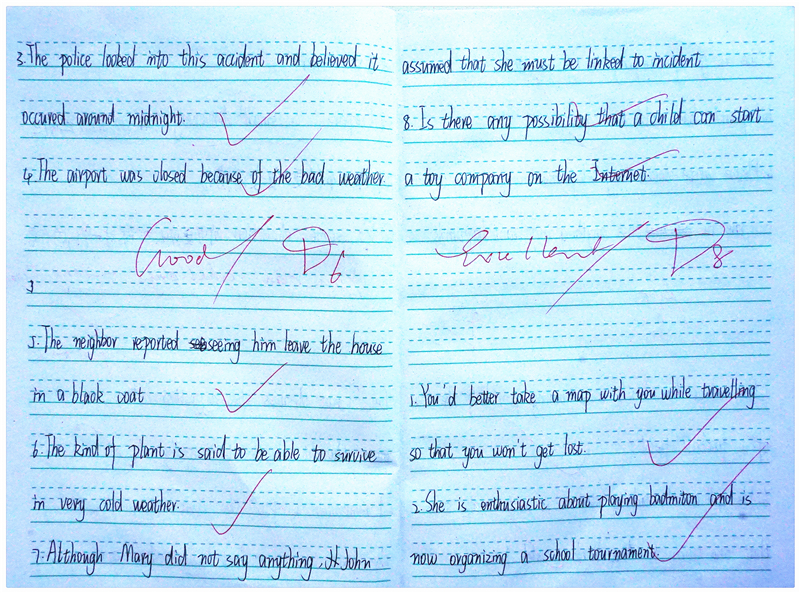 3. The police looked into this accident and believed it
occured around midnight.
4. The airport was closed because of the bad weather.
Good D6
3
5. The neighbor reported seeing him leave the house
in a black coat
6. The kind of plant is said to be able to survive
in very cold weather.
7. Although Mary did not say anything, John
assumed that she must be linked to incident
8. Is there any possibility that a child can start
a toy company on the Internet.
Excellent D8
1. You'd better take a map with you while travelling
so that you won't get lost.
2. She is enthusiastic about playing badmiton and is
now organizing a school tournament.